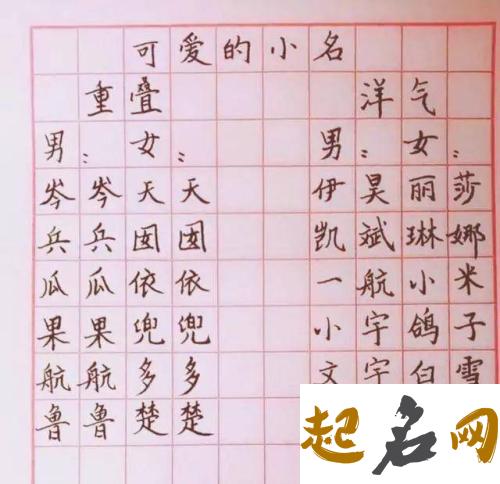 可爱的小名
重叠 洋气
男: 女: 男: 女:
岑岑 天天 伊昊 丽莎
兵兵 囡囡 凯斌 琳娜
瓜瓜 依依 一航 小米
果果 兜兜 小宇 鸽子
航航 多多 文宇 白雪
鲁鲁 楚楚
起名网